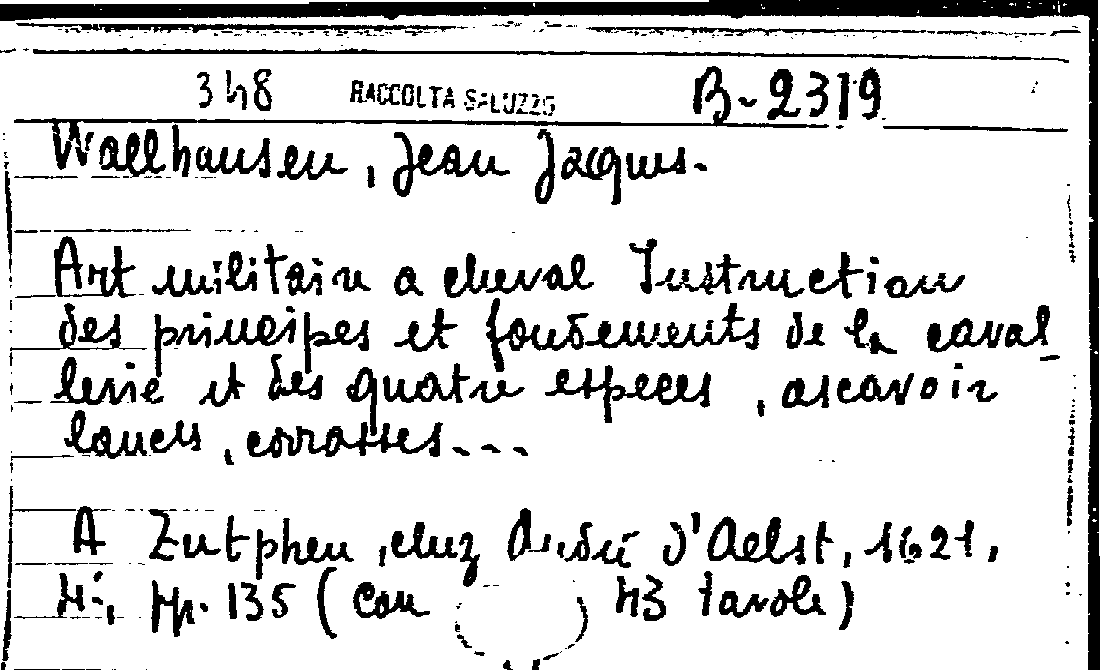 348 RACCOLTA SALUZZO B-2319
Wallhausen, Jean Jacques.
Art militaire a cheval Instruction
des principes et fondements de la caval_
lerie et des quatre especes, ascavoir
lances, corrasses---
A Zutphen, chez André d'Aelst, 1621,
4°, pp. 135 (con 43 tavole)